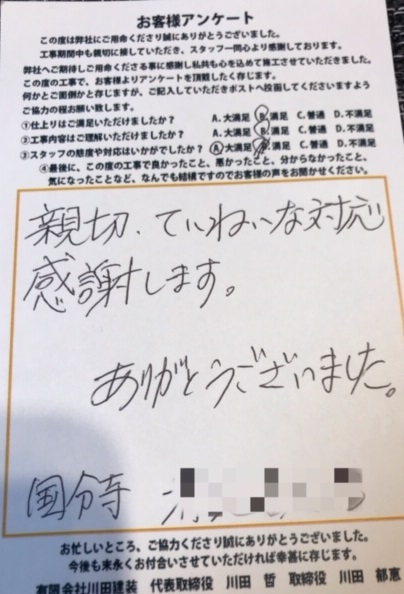 お客様アンケート
この度は弊社にご用命くださり誠にありがとうございました。
工事期間中も親切に接していただき、スタッフ一同心より感謝しております。
弊社へご期待しご用命くださる事に感謝し私共も心を込めて施工させていただきました。
この度の工事で、お客様よりアンケートを頂戴したく存じます。
何かとご面倒かと存じますが、ご記入していただきポストへ投函してくださいますよう
ご協力の程お願い致します。
①仕上りはご満足いただけましたか？ A.大満足 B.満足 C.普通 D.不満足
②工事内容はご理解いただけましたか？ A.大満足 B.満足 C.普通 D.不満足
③スタッフの態度や対応はいかがでしたか？ A.大満足 B.満足 C.普通 D.不満足
④最後に、この度の工事で良かったこと、悪かったこと、分からなかったこと、
気になったことなど、なんでも結構ですのでお客様の声をお聞かせください。
親切、ていねいな対応
感謝します。
ありがとうございました。
国分寺
お忙しいところ、ご協力くださり誠にありがとうございました。
今後も末永くお付合いさせていただければ幸甚に存じます。
有限会社川田建装 代表取締役 川田 哲 取締役 川田 郁恵